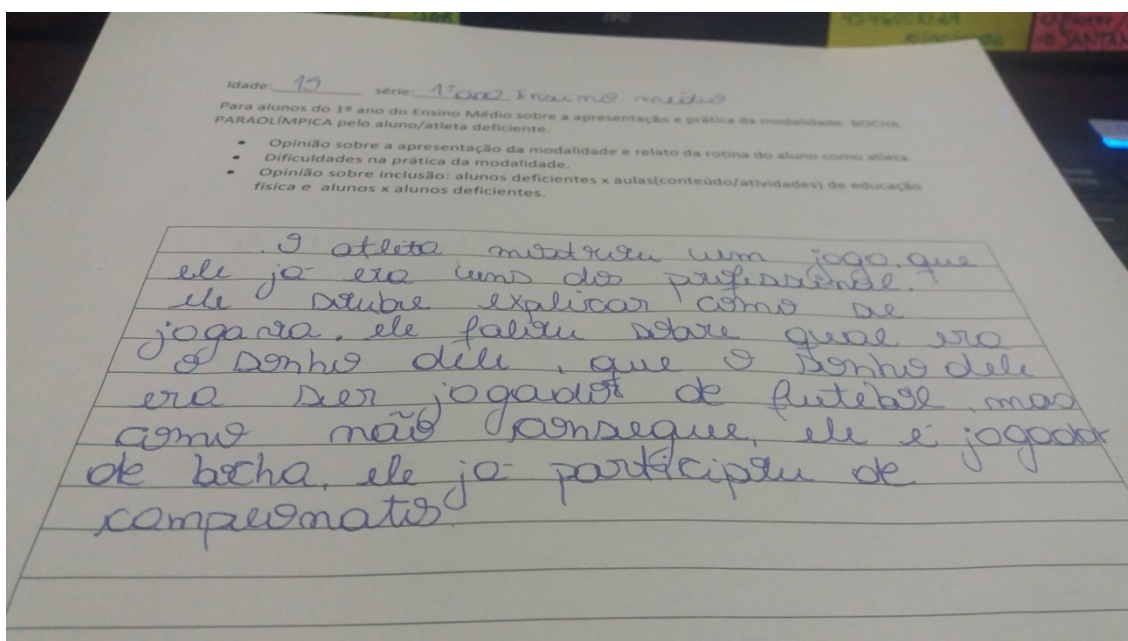 Idade: 15 série: 1º ano Ensino médio
Para alunos do 1º ano do Ensino Médio sobre a apresentação e prática da modalidade: BOCHA
PARAOLÍMPICA pelo aluno/atleta deficiente.
• Opinião sobre a apresentação da modalidade e relato da rotina do aluno como atleta.
• Dificuldades na prática da modalidade.
• Opinião sobre inclusão: alunos deficientes x aulas(conteúdo/atividades) de educação
física e alunos x alunos deficientes.
O atleta mostrou um jogo que
ele ja era uns dos profissinal.
ele soube explicar como se
jogava, ele falou sobre qual era
o sonho dele, que o sonho dele
era ser jogador de futebol mas
como não consegue, ele é jogador
de bocha, ele ja participou de
campeonatos